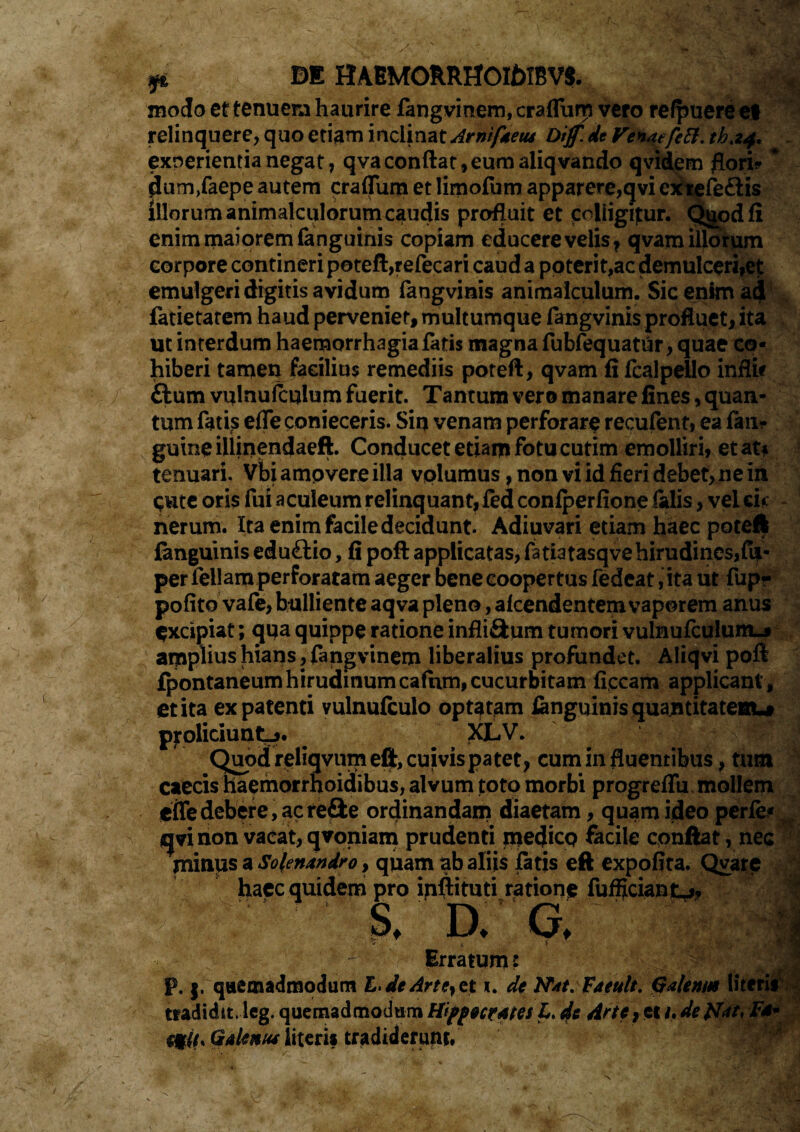 DE HAEMORRHOIDIBVS.
modo et tenuem haurire ſangvinem, craſſum vero reſpuere et
relinquere, quo etiam inclinat Arniſaeus Diſſ. de Venaeſect. th.24.
experientia negat, qva conſtat, eum aliqvando qvidem flori-
dum, ſaepe autem craſſum et limoſum apparere, qvi ex reſectis
illorum animalculorum caudis profluit et colligitur. Quod ſi
enim maiorem ſanguinis copiam educere velis, qvam illorum
corpore contineri poteſt, reſecari cauda poterit, ac demulceri, et
emulgeri digitis avidum ſangvinis animalculum. Sic enim ad
ſatietatem haud perveniet, multumque ſangvinis profluet, ita
ut interdum haemorrhagia ſatis magna ſubſequatur, quae co-
hiberi tamen facilius remediis poteſt, qvam ſi ſcalpello infli-
ctum vulnuſculum fuerit. Tantum vero manare ſines, quan-
tum ſatis eſſe conieceris. Sin venam perforare recuſent, ea ſan-
guine illinenda eſt. Conducet etiam fotu cutim emolliri, et at-
tenuari. Vbi amovere illa volumus, non vi id fieri debet, ne in
cute oris ſui aculeum relinquant, ſed conſperſione ſalis, vel ci-
nerum. Ita enim facile decidunt. Adiuvari etiam haec poteſt
ſanguinis eductio, ſi poſt applicatas, ſatiatasqve hirudines, ſu-
per ſellam perforatam aeger bene coopertus ſedeat, ita ut ſup-
poſito vaſe, bulliente aqva pleno, aſcendentem vaporem anus
excipiat; qua quippe ratione inflictum tumori vulnuſculum
amplius hians, ſangvinem liberalius profundet. Aliqvi poſt
ſpontaneum hirudinum caſum, cucurbitam ſiccam applicant,
et ita ex patenti vulnuſculo optatam ſanguinis quantitatem
proliciunt. XLV.
Quod reliqvum eſt, cuivis patet, cum in fluentibus, tum
caecis haemorrhoidibus, alvum toto morbi progreſſu mollem
eſſe debere, ac recte ordinandam diaetam, quam ideo perſe-
qvi non vacat, qvoniam prudenti medico facile conſtat, nec
minus a Solenandro, quam ab aliis ſatis eſt expoſita. Qvare
haec quidem pro inſtituti ratione ſufficiant,
S. D. G.
Erratum:
P. 3. quemadmodum L. de Arte, et 1. de Nat. Facult. Galenus literis
tradidit. leg. quemadmodum Hippocrates L. de Arte, et 1. de Nat. Fa-
cult. Galenus literis tradiderunt.